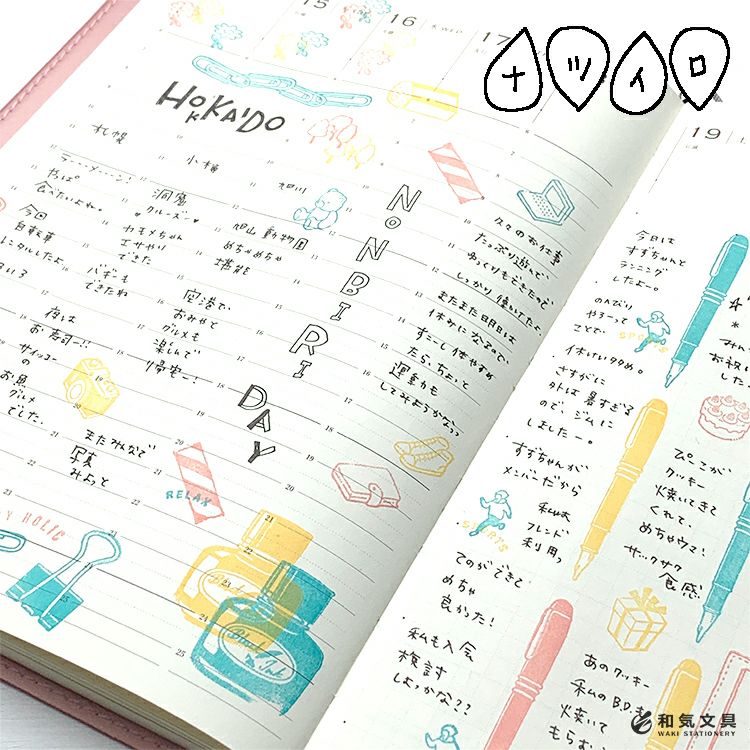 ナツイロ
15
16
17
19
HOKKAIDO
札幌
小樽
旭川
ラーーメーーン!
やっぱ
食べたいよね。
今回
自転車
レンタルしたよ
夜は
お寿司!!
サイコーの
お昼
グルメ
でした。
洞窟
クルーズ
カモメちゃん
エサやり
できた
バギーも
できたね
旭山動物園
めちゃめちゃ
堪能
空港で
おみやと
グルメも
楽しんで
帰宅ー!
またみんなで
写真
みよっと
RELAX
HOLIC
NONBIRI
DAY
久々のお仕事
たっぷり遊んで、
ゆっくりもできたので
しっかり働いてたよ
またまた明日は
休みになるので、
すこし体やすめ
たら、ちょっと
運動も
してみようかなっっ
今日は
すずちゃんと
ランニング
したよー。
のんびり
やるって
ことで、
SPORTS
さすがに
外は暑すぎる
ので、ジムに
しましたー。
すずちゃんが
メンバーだから
フレンド
利用っ
SPORTS
てのができて
めちゃ
良かった!
私も入会
検討
しよっかな??
ぴこが
クッキー
焼いてきて
くれて、
めちゃウマ!
サックサク
食感
あのクッキー
私のB.D.も
焼いて
もらお
Ink
和気文具
WAKI STATIONERY